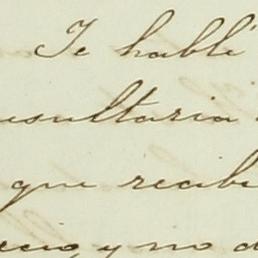 Te hablé
esultaria
que recibi
ecio, y no d